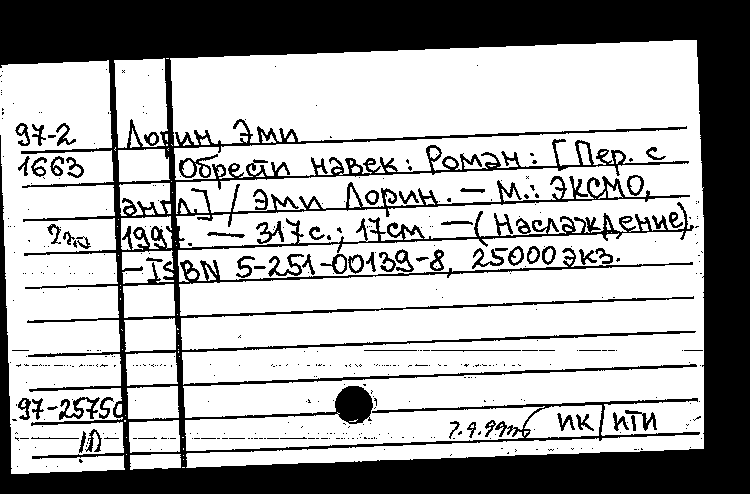 97-2 Лорин, Эми
1663 Обрести навек: Роман: [Пер. с
англ.] / Эми Лорин. — М.: ЭКСМО,
1997. — 317с.; 17см. — (Наслаждение).
— ISBN 5-251-00139-8, 25000 экз.
97-25750
ИК/ИТИ